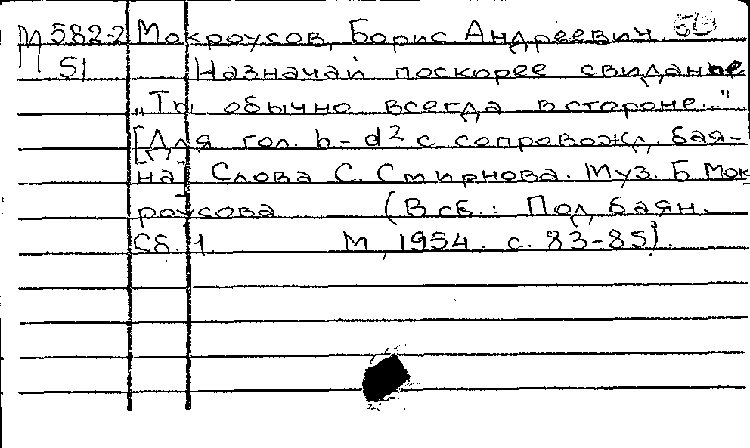 М 582-2 Мокроусов, Борис Андреевич.
51 Назначай поскорее свиданье
„Ты обычно всегда в стороне.."
[Для гол. h-d² с сопровожд. бая-
на] Слова С. Смирнова. Муз. Б. Мок
роусова (В сб.: Под баян.
Сб. 1. М, 1954. с. 83-85).